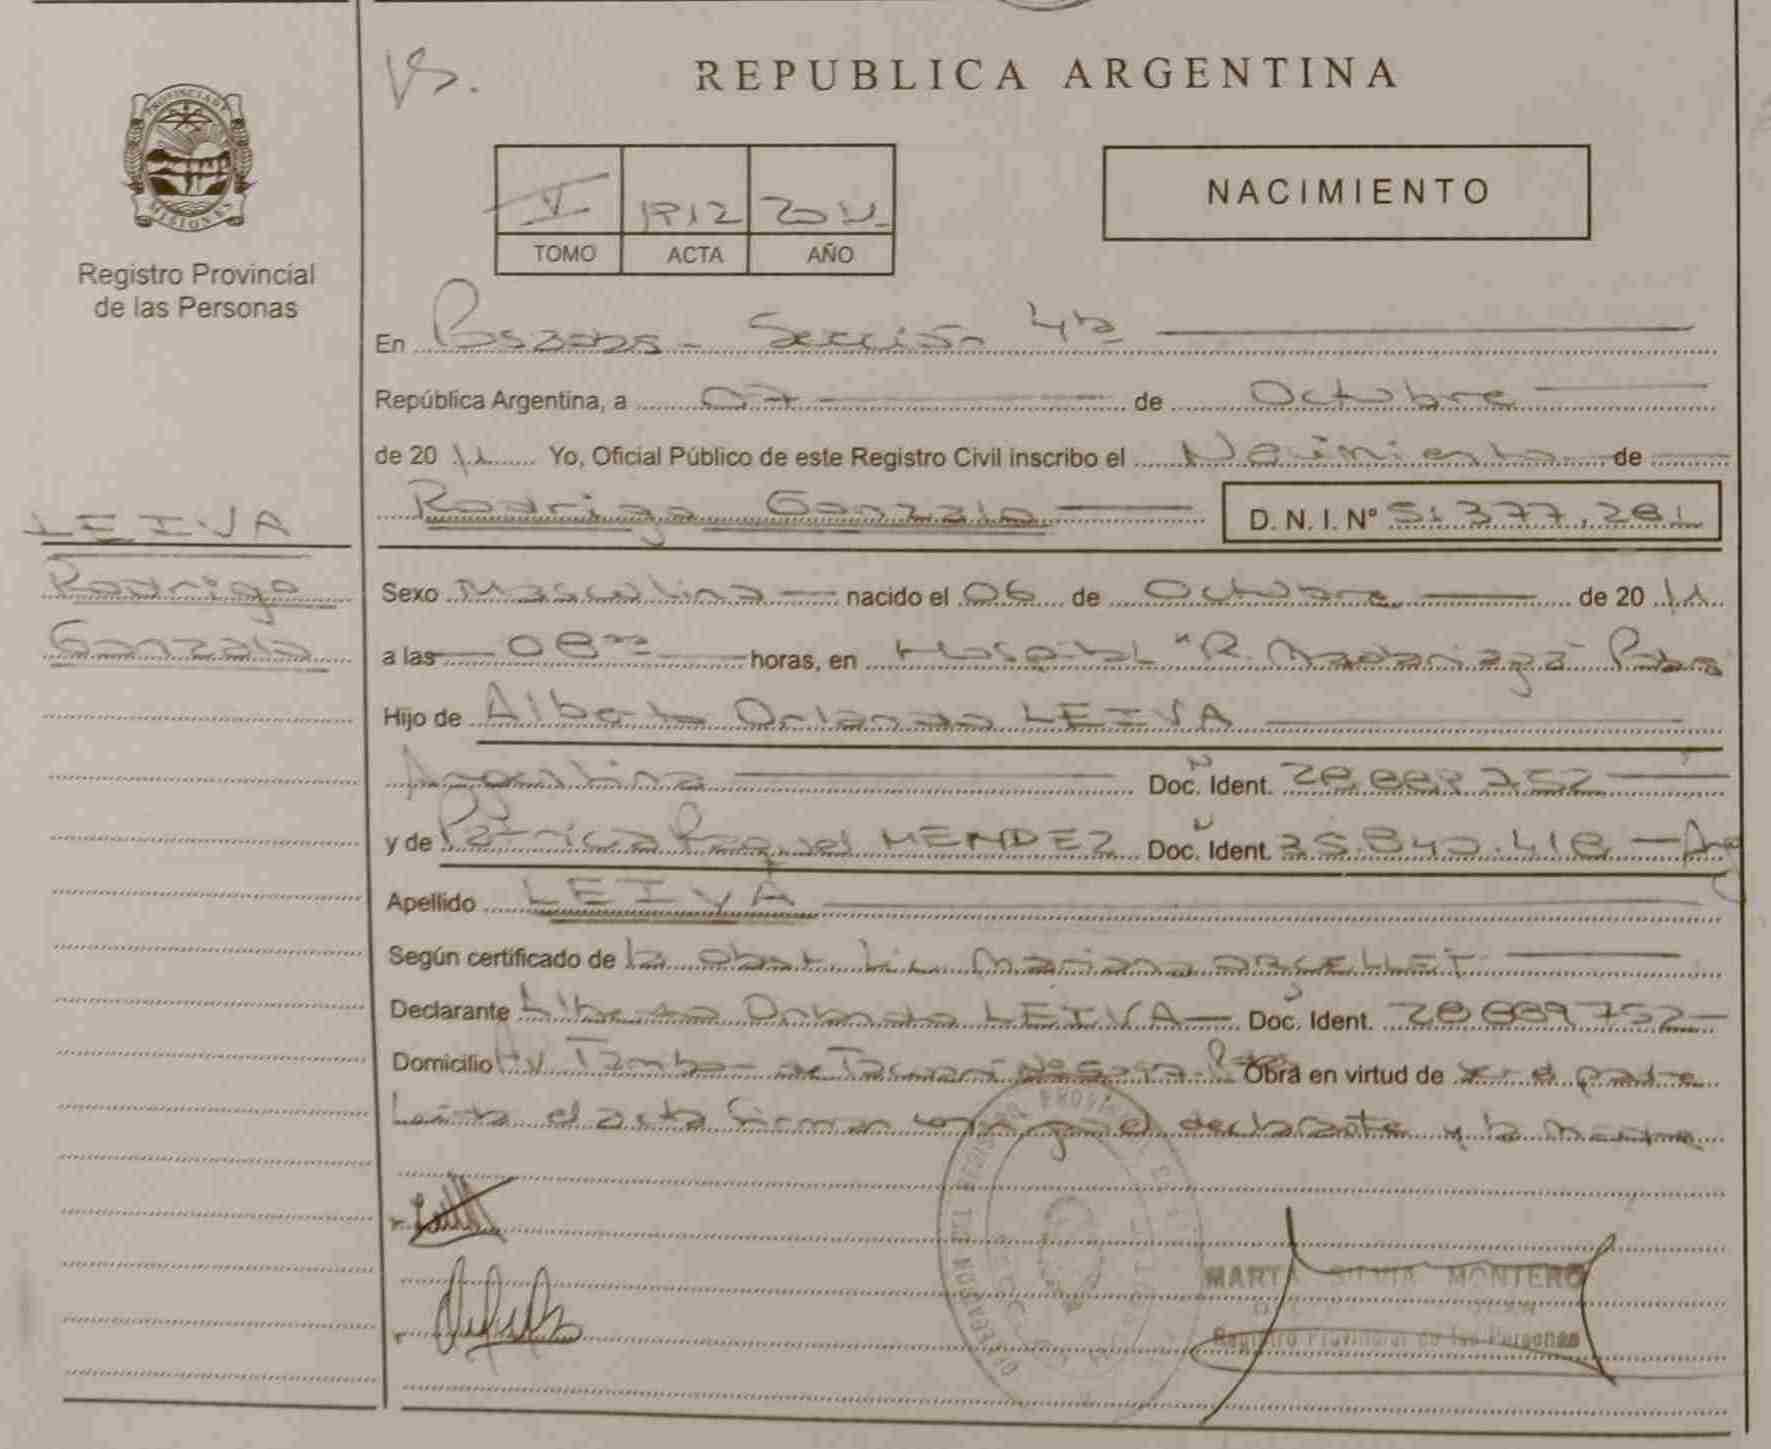 PROVINCIA DE
MISIONES
Registro Provincial
de las Personas
LEIVA
Rodrigo
Gonzalo
REPUBLICA ARGENTINA
V 1912 2011
TOMO ACTA AÑO
NACIMIENTO
En Posadas - Sección 4ta
República Argentina, a 07 de Octubre
de 2011 Yo, Oficial Público de este Registro Civil inscribo el Nacimiento de
Rodrigo Gonzalo D. N. I. Nº 51.377.281
Sexo Masculino nacido el 06 de Octubre de 2011
a las 08 horas, en Hospital "R. Madariaga" Pdas
Hijo de Alberto Orlando LEIVA
Argentina Doc. Ident. 28.889.752
y de Patricia Raquel MENDEZ Doc. Ident. 35.843.418 - Arg
Apellido LEIVA
Según certificado de la Obst. Lic. Mariana
Declarante Alberto Orlando LEIVA Doc. Ident. 28889752
Domicilio Av. Tambor de Tacuarí Obra en virtud de ser el padre
Leída el acta firman conmigo el declarante y la misma
MARTA SILVIA MONTERO
Registro Provincial de las Personas